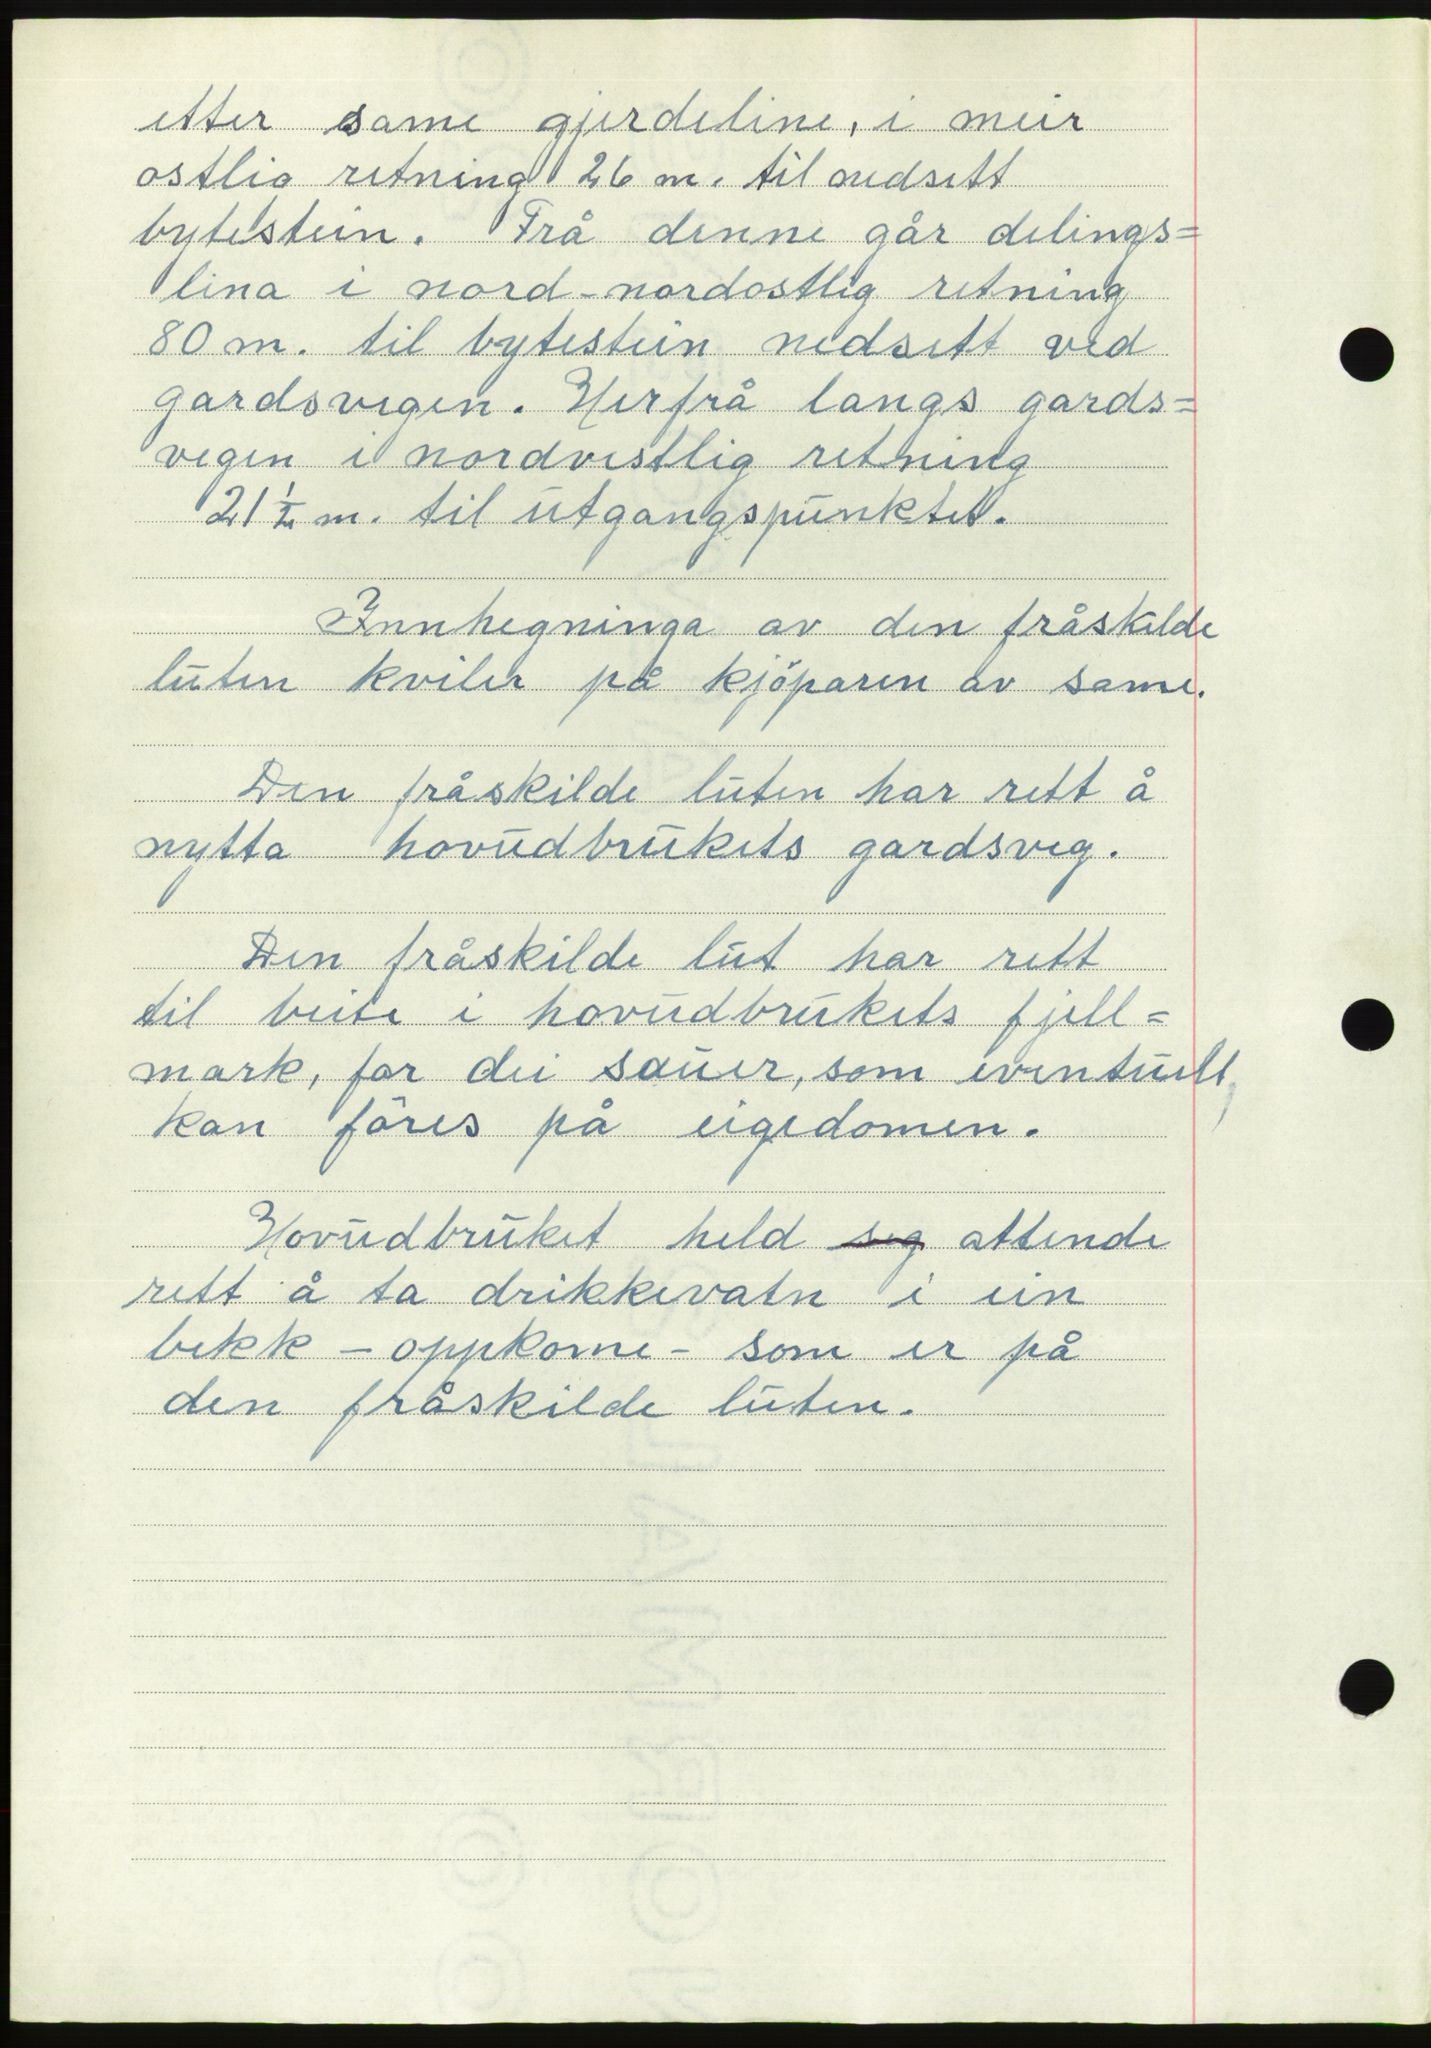 etter same gjerdeline, i meir
ostlig retning 26 m. til nedsett
bytestein. Frå denne går delings=
lina i nord-nordostlig retning
80 m. til bytestein nedsett ved
gardsvegen. Herfrå langs gards=
vegen i nordvestlig retning
21 1/2 m. til utgangspunktet.
Innhegninga av den fråskilde
luten kviler på kjöparen av same.
Den fråskilde luten har rett å
nytta hovudbrukets gardsveg.
Den fråskilde lut har rett
til beite i hovudbrukets fjell=
mark, for dei sauer, som eventuelt
kan föres på eigedomen.
Hovudbruket held seg attende
rett å ta drikkevatn i ein
bekk - oppkome - som er på
den fråskilde luten.